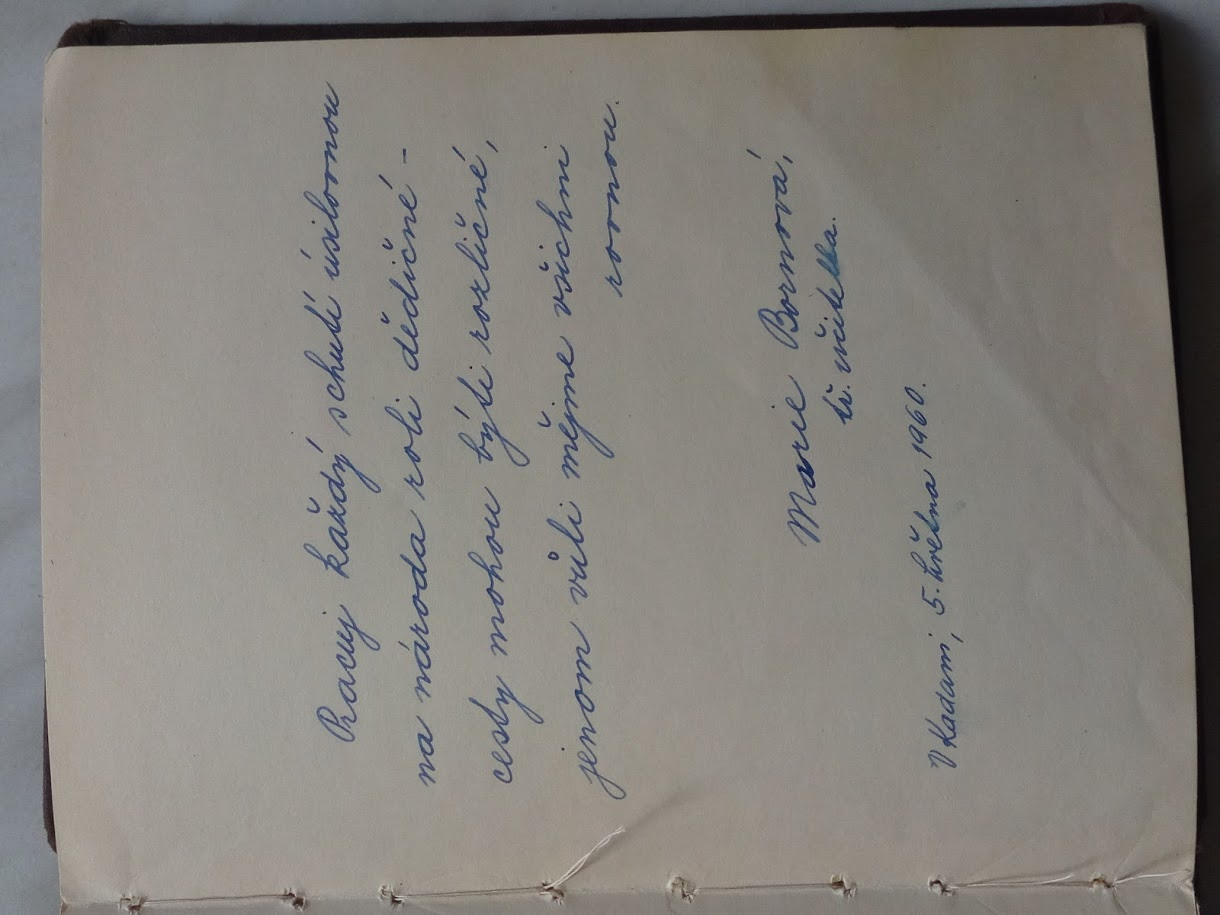 Pracuj každý s chutí úsilovnou
na národa roli dědičné -
cesty mohou býti rozličné,
jenom vůli mějme všichni
rovnou.
Marie Bornová,
tř. učitelka.
V Kadani, 5. května 1960.